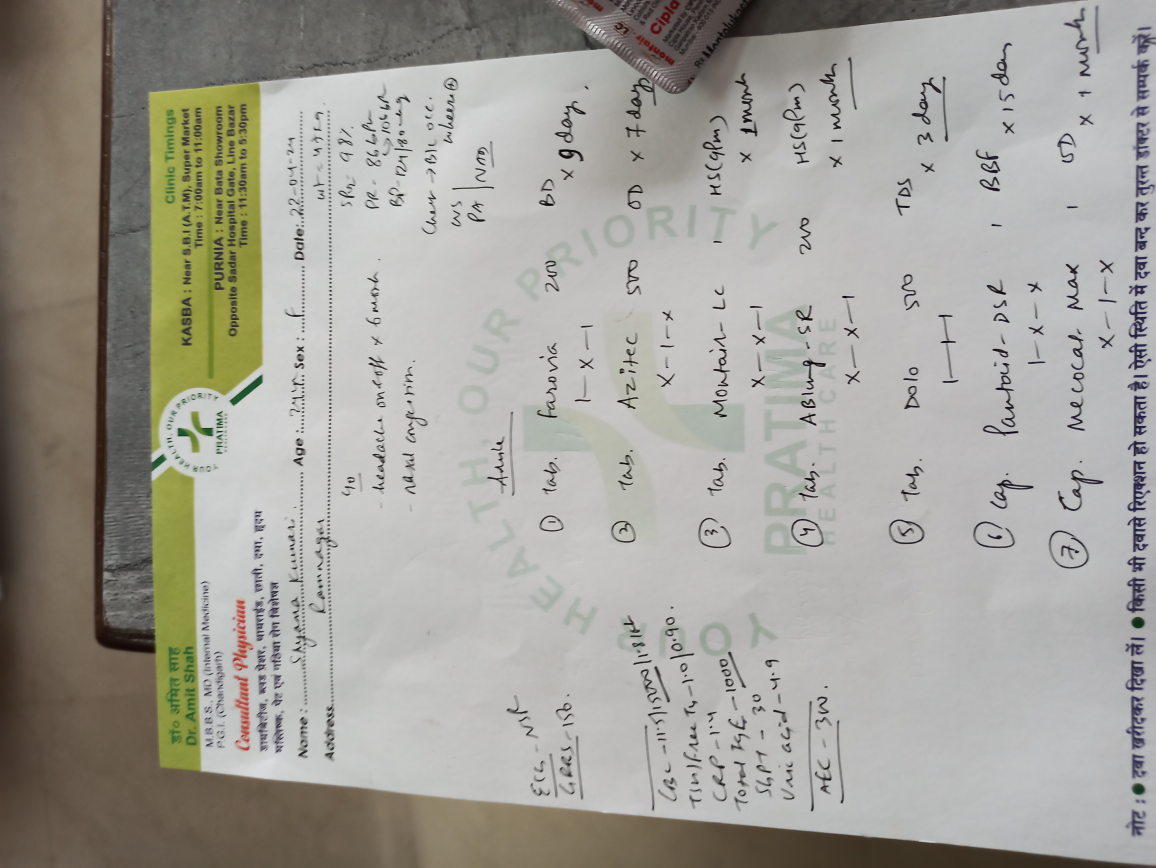 डॉ० अमित साह
Dr. Amit Shah
M.B.B.S., MD (Internal Medicine)
P.G.I. (Chandigarh)
Consultant Physician
डायबिटीज, ब्लड प्रेशर, थायराईड, छाती, दमा, हृदय
मस्तिष्क, पेट एवं गठिया रोग विशेषज्ञ
YOUR HEALTH, OUR PRIORITY
PRATIMA
Clinic Timings
KASBA : Near S.B.I (A.T.M), Super Market
Time : 7:00am to 11:00am
PURNIA : Near Bata Showroom
Opposite Sadar Hospital Gate, Line Bazar
Time : 11:30am to 5:30pm
Name : Shyama Kumari Age : 24Yr. Sex : F Date: 22-04-24
Address Ramnagar
c/o
- headache on & off x 6 month.
- nasal congestion.
SPO2 - 98%
PR - 86 bpm
BP - 124/80
Chest → B/L occ. wheeze ⊕
PA | NAD
Advice
ECG - NSR
GRBS - 150.
Total IgE - 1000
CRP - 1.4
SGPT - 30
Uric acid - 4.9
① Tab. Farovia 200 BD x 9 day.
1 - x - 1
② Tab. Azitec 500 OD x 7 day
x - 1 - x
③ Tab. Montair - LC 1 HS (9pm)
x - x - 1 x 1 month
④ Tab. ABlung - SR 200 HS (9pm)
x - x - 1 x 1 month
⑤ Tab. Dolo 500 TDS
1 - 1 - 1 x 3 day
⑥ Cap. Pantoid - DSR 1 BBF
1 - x - x x 15 day
⑦ Cap. Mecocal Max 1 OD
x - 1 - x x 1 month
YOUR HEALTH, OUR PRIORITY
PRATIMA
HEALTH CARE
नोट : ● दवा खरीदकर दिखा लें। ● किसी भी दवासे रिएक्शन हो सकता है। ऐसी स्थिति में दवा बन्द कर तुरन्त डॉक्टर से सम्पर्क करें।
montair - LC
Cipla